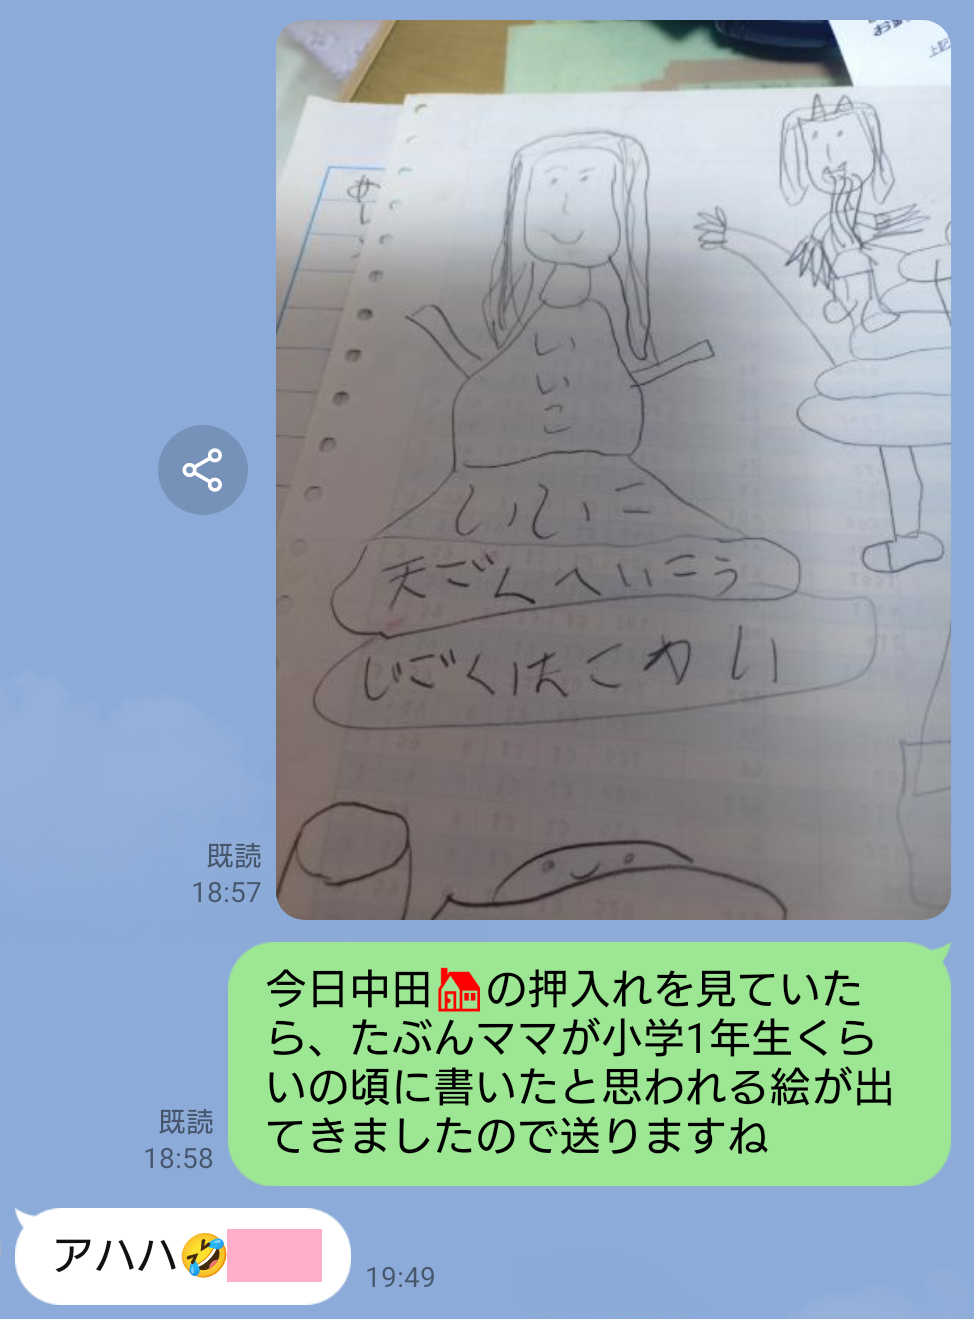 お
上記
せ
し
い
い
こ
いいこ
天ごくへいこう
じごくはこわい
既読
18:57
今日中田🏠の押入れを見ていた
ら、たぶんママが小学1年生くら
いの頃に書いたと思われる絵が出
てきましたので送りますね
既読
18:58
アハハ🤣
19:49